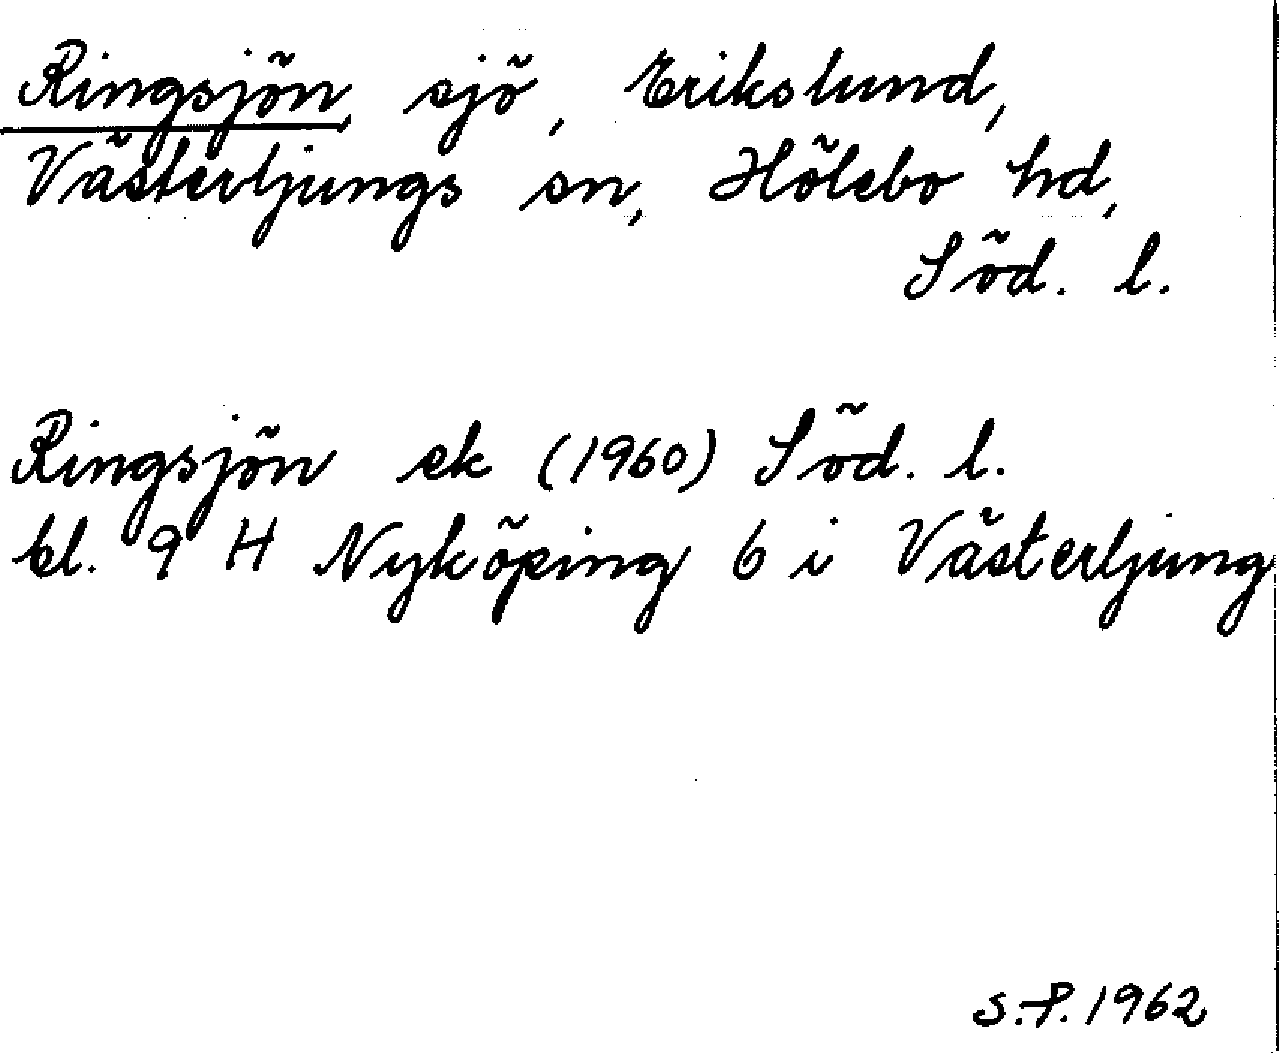 Ringsjön, sjö, Erikslund,
Västerljungs sn, Hölebo hd,
Söd. l.
Ringsjön ek (1960) Söd. l.
bl. 9 H Nyköping 6 i Västerljung
S.P. 1962